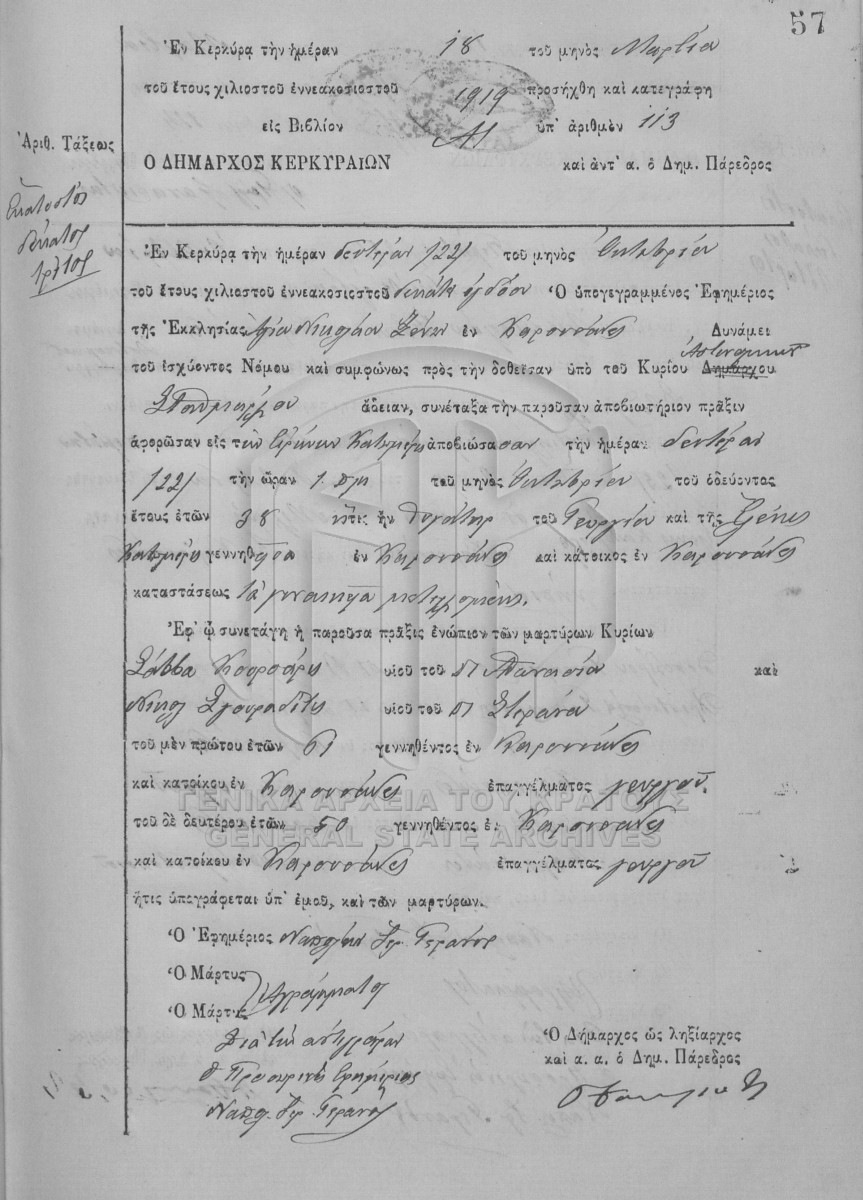 57
Ἐν Κερκύρᾳ τὴν ἡμέραν 18 τοῦ μηνὸς Μαρτίου
τοῦ ἔτους χιλιοστοῦ ἐννεακοσιοστοῦ 1919 προσήχθη καὶ κατεγράφη
εἰς Βιβλίον Α1 ὑπ' ἀριθμὸν 113
Ο ΔΗΜΑΡΧΟΣ ΚΕΡΚΥΡΑΙΩΝ καὶ ἀντ' α. ὁ Δημ. Πάρεδρος
Ἀριθ. Τάξεως
Εκατοστὸς
δέκατος
τρίτος
Ἐν Κερκύρᾳ τὴν ἡμέραν δευτέραν /22/ τοῦ μηνὸς Ὀκτωβρίου
τοῦ ἔτους χιλιοστοῦ ἐννεακοσιοστοῦ δεκάτου ὀγδόου Ὁ ὑπογεγραμμένος Ἐφημέριος
τῆς Ἐκκλησίας Αγίου Νικολάου ἐν Καρουσάδες Δυνάμει
τοῦ ἰσχύοντος Νόμου καὶ συμφώνως πρὸς τὴν δοθεῖσαν ὑπὸ τοῦ Κυρίου Δημάρχου Αστυνομικοῦ
Σταθμάρχου ἄδειαν, συνέταξα τὴν παροῦσαν ἀποβιωτήριον πρᾶξιν
ἀφορῶσαν εἰς τὴν Εἰρήνην ἀποβιώσασαν τὴν ἡμέραν δευτέραν
/22/ τὴν ὥραν 1 π.μ. τοῦ μηνὸς Ὀκτωβρίου τοῦ ὁδεύοντος
ἔτους ἐτῶν 38 ἥτις ἦν θυγάτηρ τοῦ Γεωργίου καὶ τῆς Ἑλένης
γεννηθεῖσα ἐν Καρουσάδες καὶ κάτοικος ἐν Καρουσάδες
καταστάσεως
Ἐφ' ᾧ συνετάγη ἡ παροῦσα πρᾶξις ἐνώπιον τῶν μαρτύρων Κυρίων
Σάββα Κουρσάρη υἱοῦ τοῦ π Αθανασίου καὶ
Νικολ Σγουραδίτη υἱοῦ τοῦ π Στεφάνου
τοῦ μὲν πρώτου ἐτῶν 61 γεννηθέντος ἐν Καρουσάδες
καὶ κατοίκου ἐν Καρουσάδες ἐπαγγέλματος γεωργοῦ.
ΓΕΝΙΚΑ ΑΡΧΕΙΑ ΤΟΥ ΚΡΑΤΟΥΣ
τοῦ δὲ δευτέρου ἐτῶν 50 γεννηθέντος ἐν Καρουσάδες
GENERAL STATE ARCHIVES
καὶ κατοίκου ἐν Καρουσάδες ἐπαγγέλματος γεωργοῦ
ἥτις ὑπογράφεται ὑπ' ἐμοῦ, καὶ τῶν μαρτύρων.
Ὁ Ἐφημέριος
Ὁ Μάρτυς
Ἀγράμματοι
Ὁ Μάρτυς
Διὰ τὴν ἀντιγραφὴν
Ὁ Δήμαρχος ὡς ληξίαρχος
καὶ α. α. ὁ Δημ. Πάρεδρος
ὁ Προσωρινὸς Ἐφημέριος